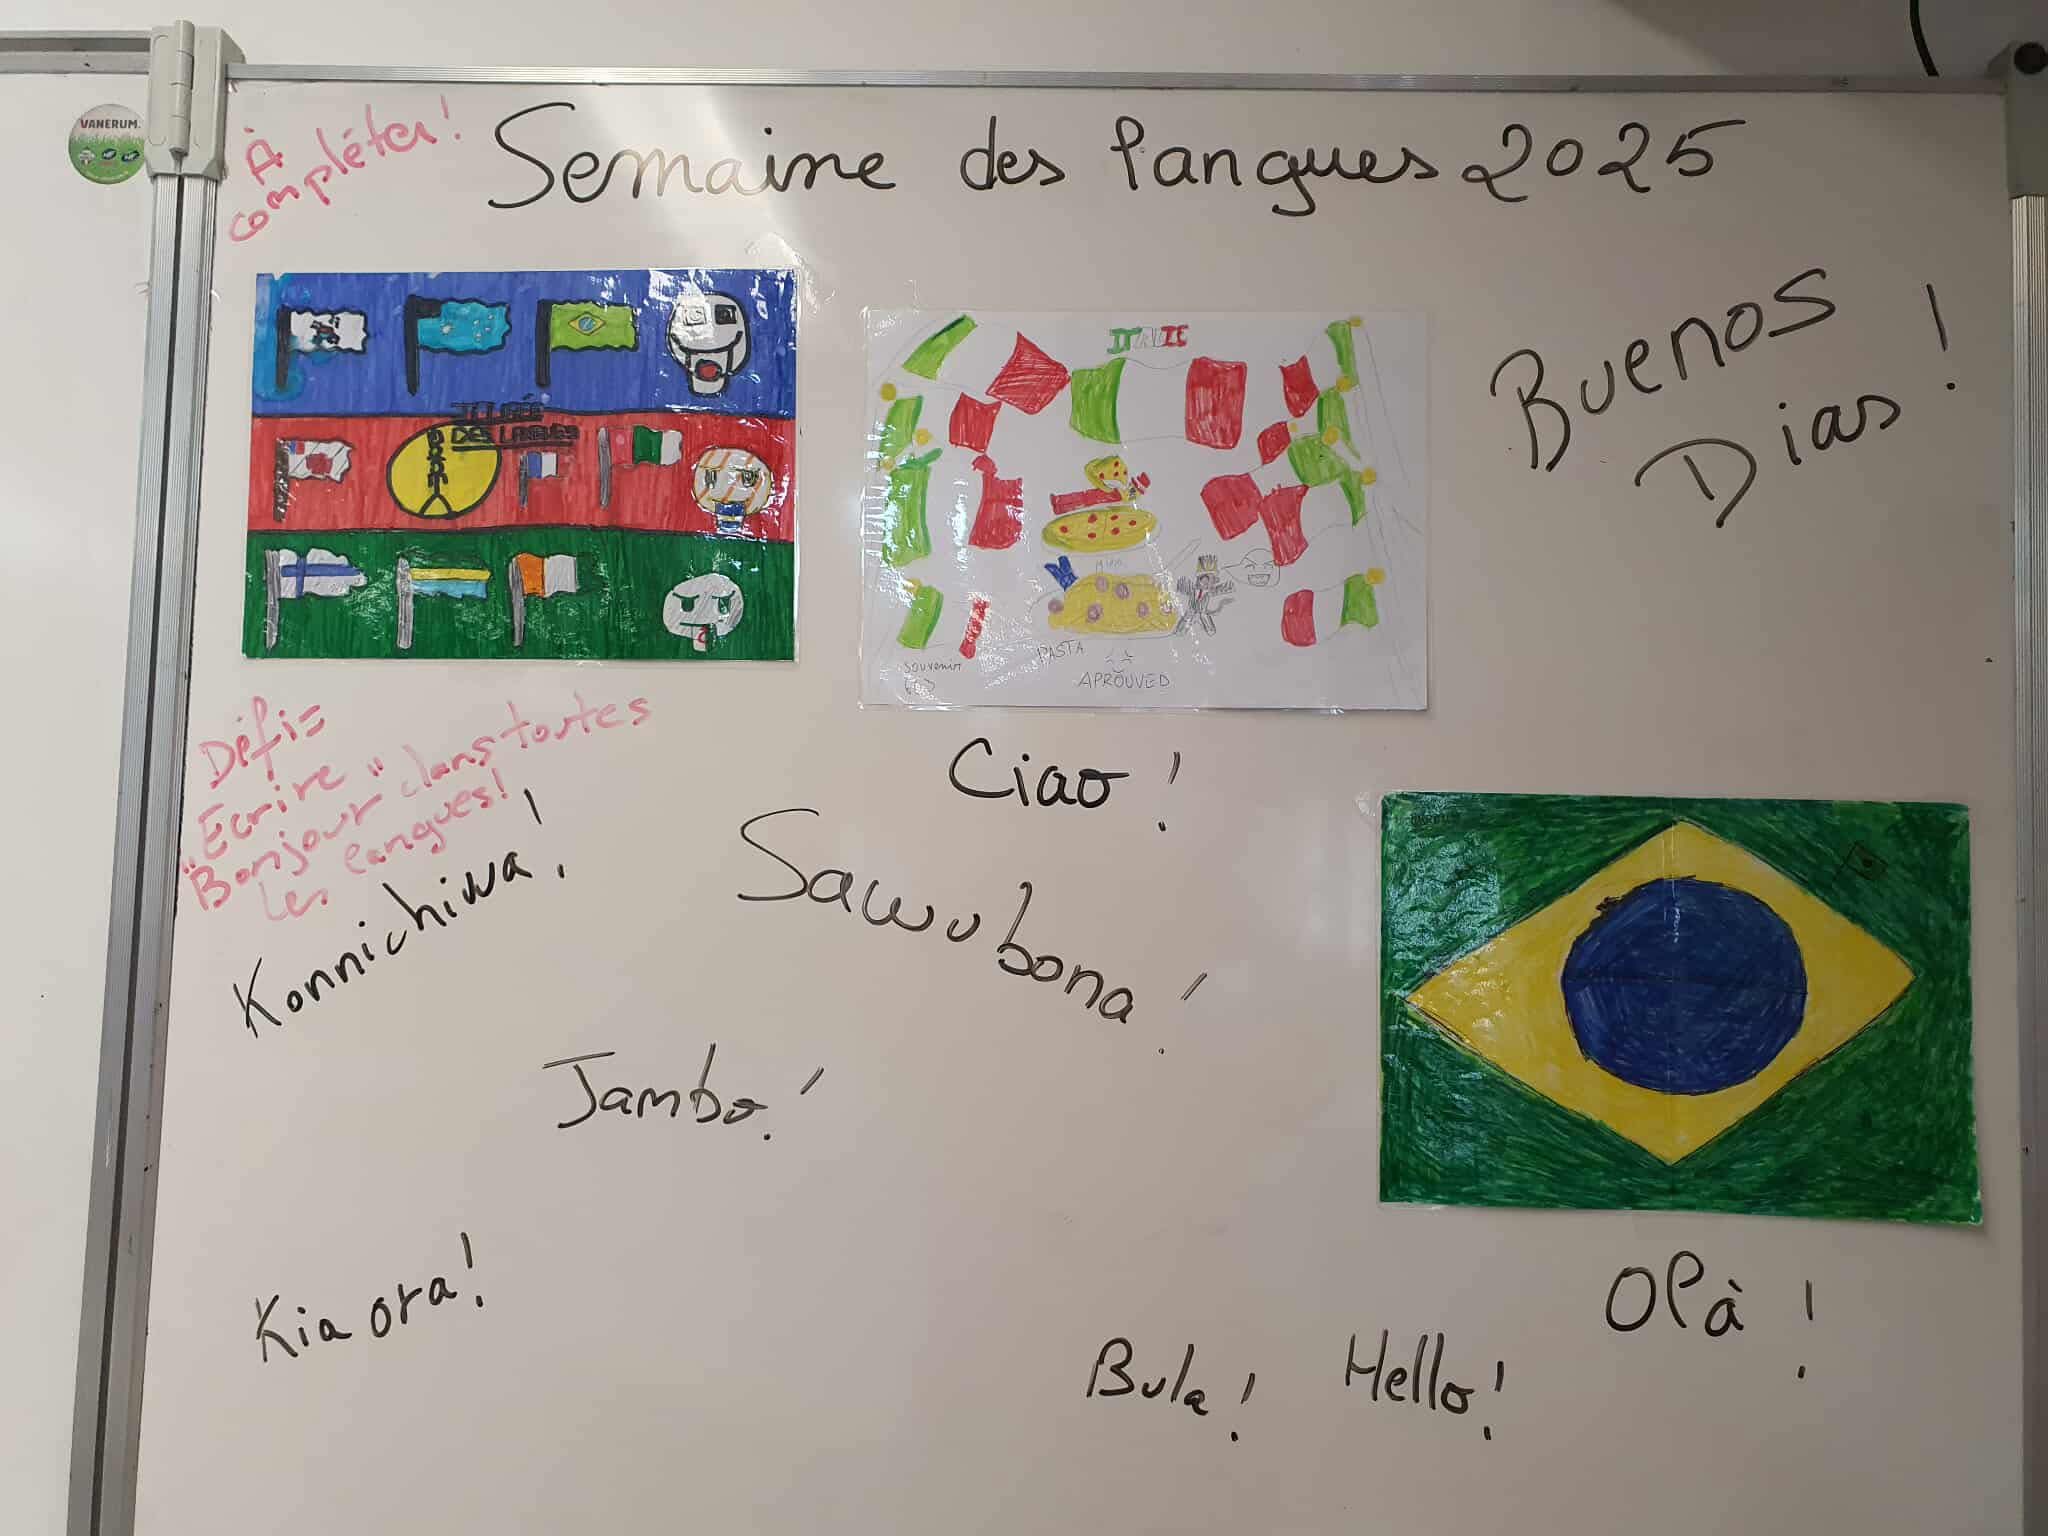 VANERUM.
À
compléter!
Semaine des langues 2025
JOURNÉE
DES LANGUES
ITALIE
Buenos
Dias!
MIAM
PASTA
APROUVED
souvenir
Ciao!
Défi=
"Ecrire
"Bonjour" dans toutes
les langues!
Konnichiwa!
Sawubona!
Jambo!
Kia ora!
Olà!
Bula! Hello!